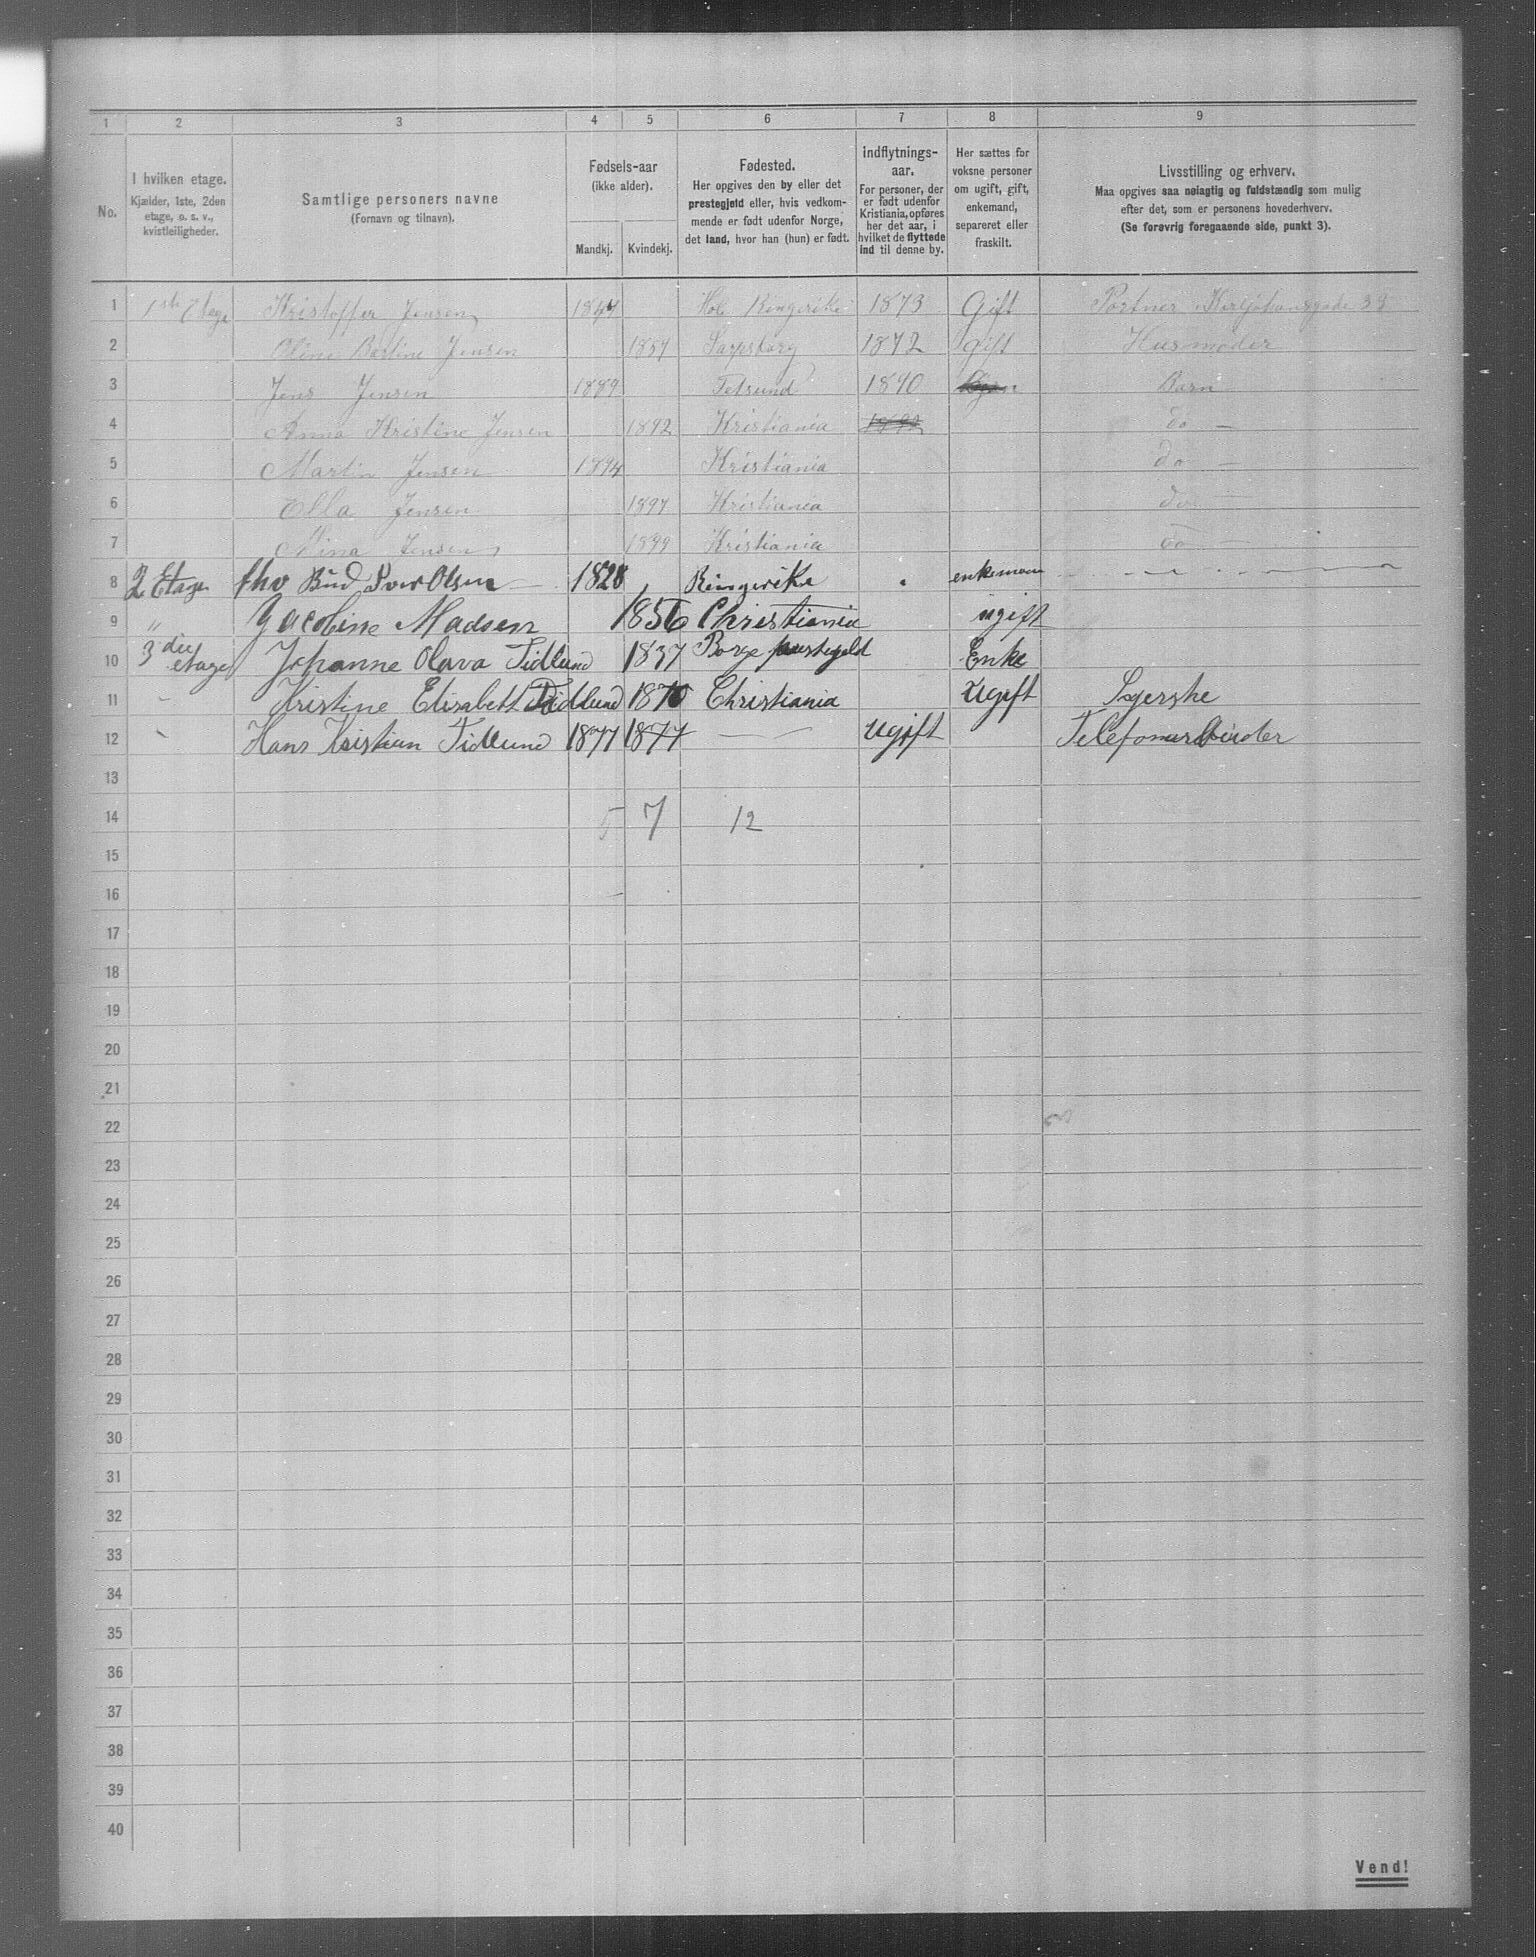 1 2 3 4 5 6 7 8 9
No.
I hvilken etage.
Kjælder, 1ste, 2den
etage, o. s. v.,
kvistleiligheder.
Samtlige personers navne
(Fornavn og tilnavn).
Fødsels-aar
(ikke alder).
Mandkj. Kvindekj.
Fødested.
Her opgives den by eller det
prestegjeld eller, hvis vedkom-
mende er født udenfor Norge,
det land, hvor han (hun) er født.
indflytnings-
aar.
For personer, der
er født udenfor
Kristiania, opføres
her det aar, i
hvilket de flyttede
ind til denne by.
Her sættes for
voksne personer
om ugift, gift,
enkemand,
separeret eller
fraskilt.
Livsstilling og erhverv.
Maa opgives saa nøiagtig og fuldstændig som mulig
efter det, som er personens hovederhverv.
(Se forøvrig foregaaende side, punkt 3).
1 1ste Etage Kristoffer Jensen 1847 Hole Ringerike 1873 Gift Portner Karljohansgade 33
2 Oline Bertine Jensen 1857 Sarpsborg 1872 Gift Husmoder
3 Jens Jensen 1889 Fetsund 1890 Barn
4 Anna Kristine Jensen 1892 Kristiania 1892 do —
5 Martin Jensen 1894 Kristiania do —
6 Ella Jensen 1897 Kristiania do —
7 Mina Jensen 1899 Kristiania do —
8 2 Etage Olsen 1828 Ringerike enkeman
9 " Jacobine Madsen 1856 Christiania ugift
10 3 die etage Johanne Olava Tidlund 1837 Borge prestegeld Enke
11 - Kristine Elisabett Tidlund 1870 Christiania Ugift Syerske
12 - Hans Kristian Tidlund 1877 1877 — — Ugift Telefonarbeider
13
14 5 7 12
15
16
17
18
19
20
21
22
23
24
25
26
27
28
29
30
31
32
33
34
35
36
37
38
39
40
Vend!